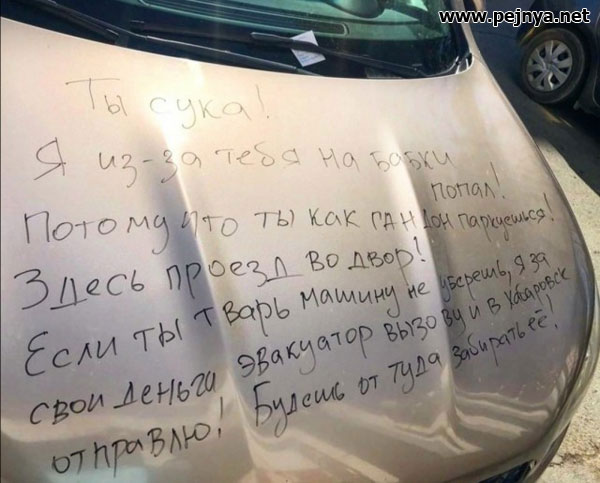 www.pejnya.net
Ты сука!
Я из-за тебя на бабки
попал!
Потому что ты как гандон паркуешься!
Здесь проезд во двор!
Если ты тварь машину не уберешь, я за
свои деньги эвакуатор вызову и в Хабаровск
отправлю! Будешь от туда забирать её!